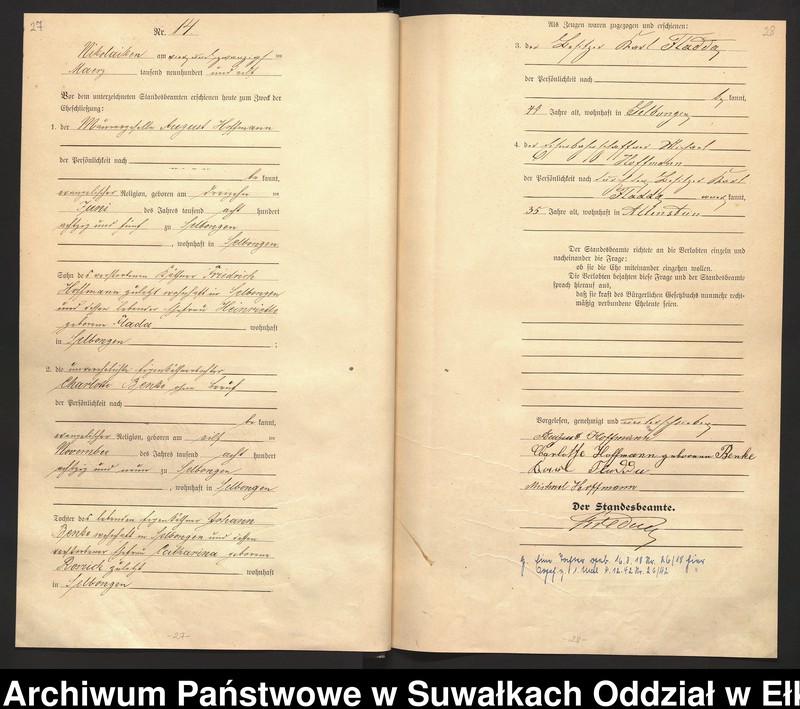 27
Nr. 14
Nikolaiken am vier und zwanzigsten
Maerz tausend neunhundert und elf
Vor dem unterzeichneten Standesbeamten erschienen heute zum Zweck der
Eheschließung:
1. der Maurergeselle August Hoffmann
der Persönlichkeit nach
be kannt,
evangelischer Religion, geboren am dreizehn
Juni des Jahres tausend acht hundert
achtzig und fünf zu Selbongen
, wohnhaft in Selbongen
Sohn des verstorbenen Käthner Friedrich
Hoffmann zuletzt wohnhaft in Selbongen
und dessen lebender Ehefrau Heinriette
geborene Fladda wohnhaft
in Selbongen ;
2. die unverehelichte Eigenkäthnertochter
Charlotte Benke ohne Beruf
der Persönlichkeit nach
be kannt,
evangelischer Religion, geboren am elf
November des Jahres tausend acht hundert
achtzig und neun zu Selbongen
, wohnhaft in Selbongen
Tochter des lebenden Eigenkäthner Johann
Benke wohnhaft in Selbongen und dessen
verstorbener Ehefrau Catharina geborene
zuletzt wohnhaft
in Selbongen
-27-
28
Als Zeugen waren zugezogen und erschienen:
3. der Besitzer Karl Fladda
der Persönlichkeit nach
be kannt,
49 Jahre alt, wohnhaft in Selbongen
4. der Michael
Hoffmann
der Persönlichkeit nach durch den Besitzer Karl
Fladda kannt,
35 Jahre alt, wohnhaft in Allenstein
Der Standesbeamte richtete an die Verlobten einzeln und
nacheinander die Frage:
ob sie die Ehe miteinander eingehen wollen.
Die Verlobten bejahten diese Frage und der Standesbeamte
sprach hierauf aus,
daß sie kraft des Bürgerlichen Gesetzbuchs nunmehr recht-
mäßig verbundene Eheleute seien.
Vorgelesen, genehmigt und unterschrieben
August Hoffmann
Charlotte Hoffmann geborene Benke
Karl Fladda
Michael Hoffmann
Der Standesbeamte.
Eine Tochter geb. 16.3.18 Nr. 26/18 hier
4.12.42 Nr. 26/42
-28-
Archiwum Państwowe w Suwałkach Oddział w Ełk